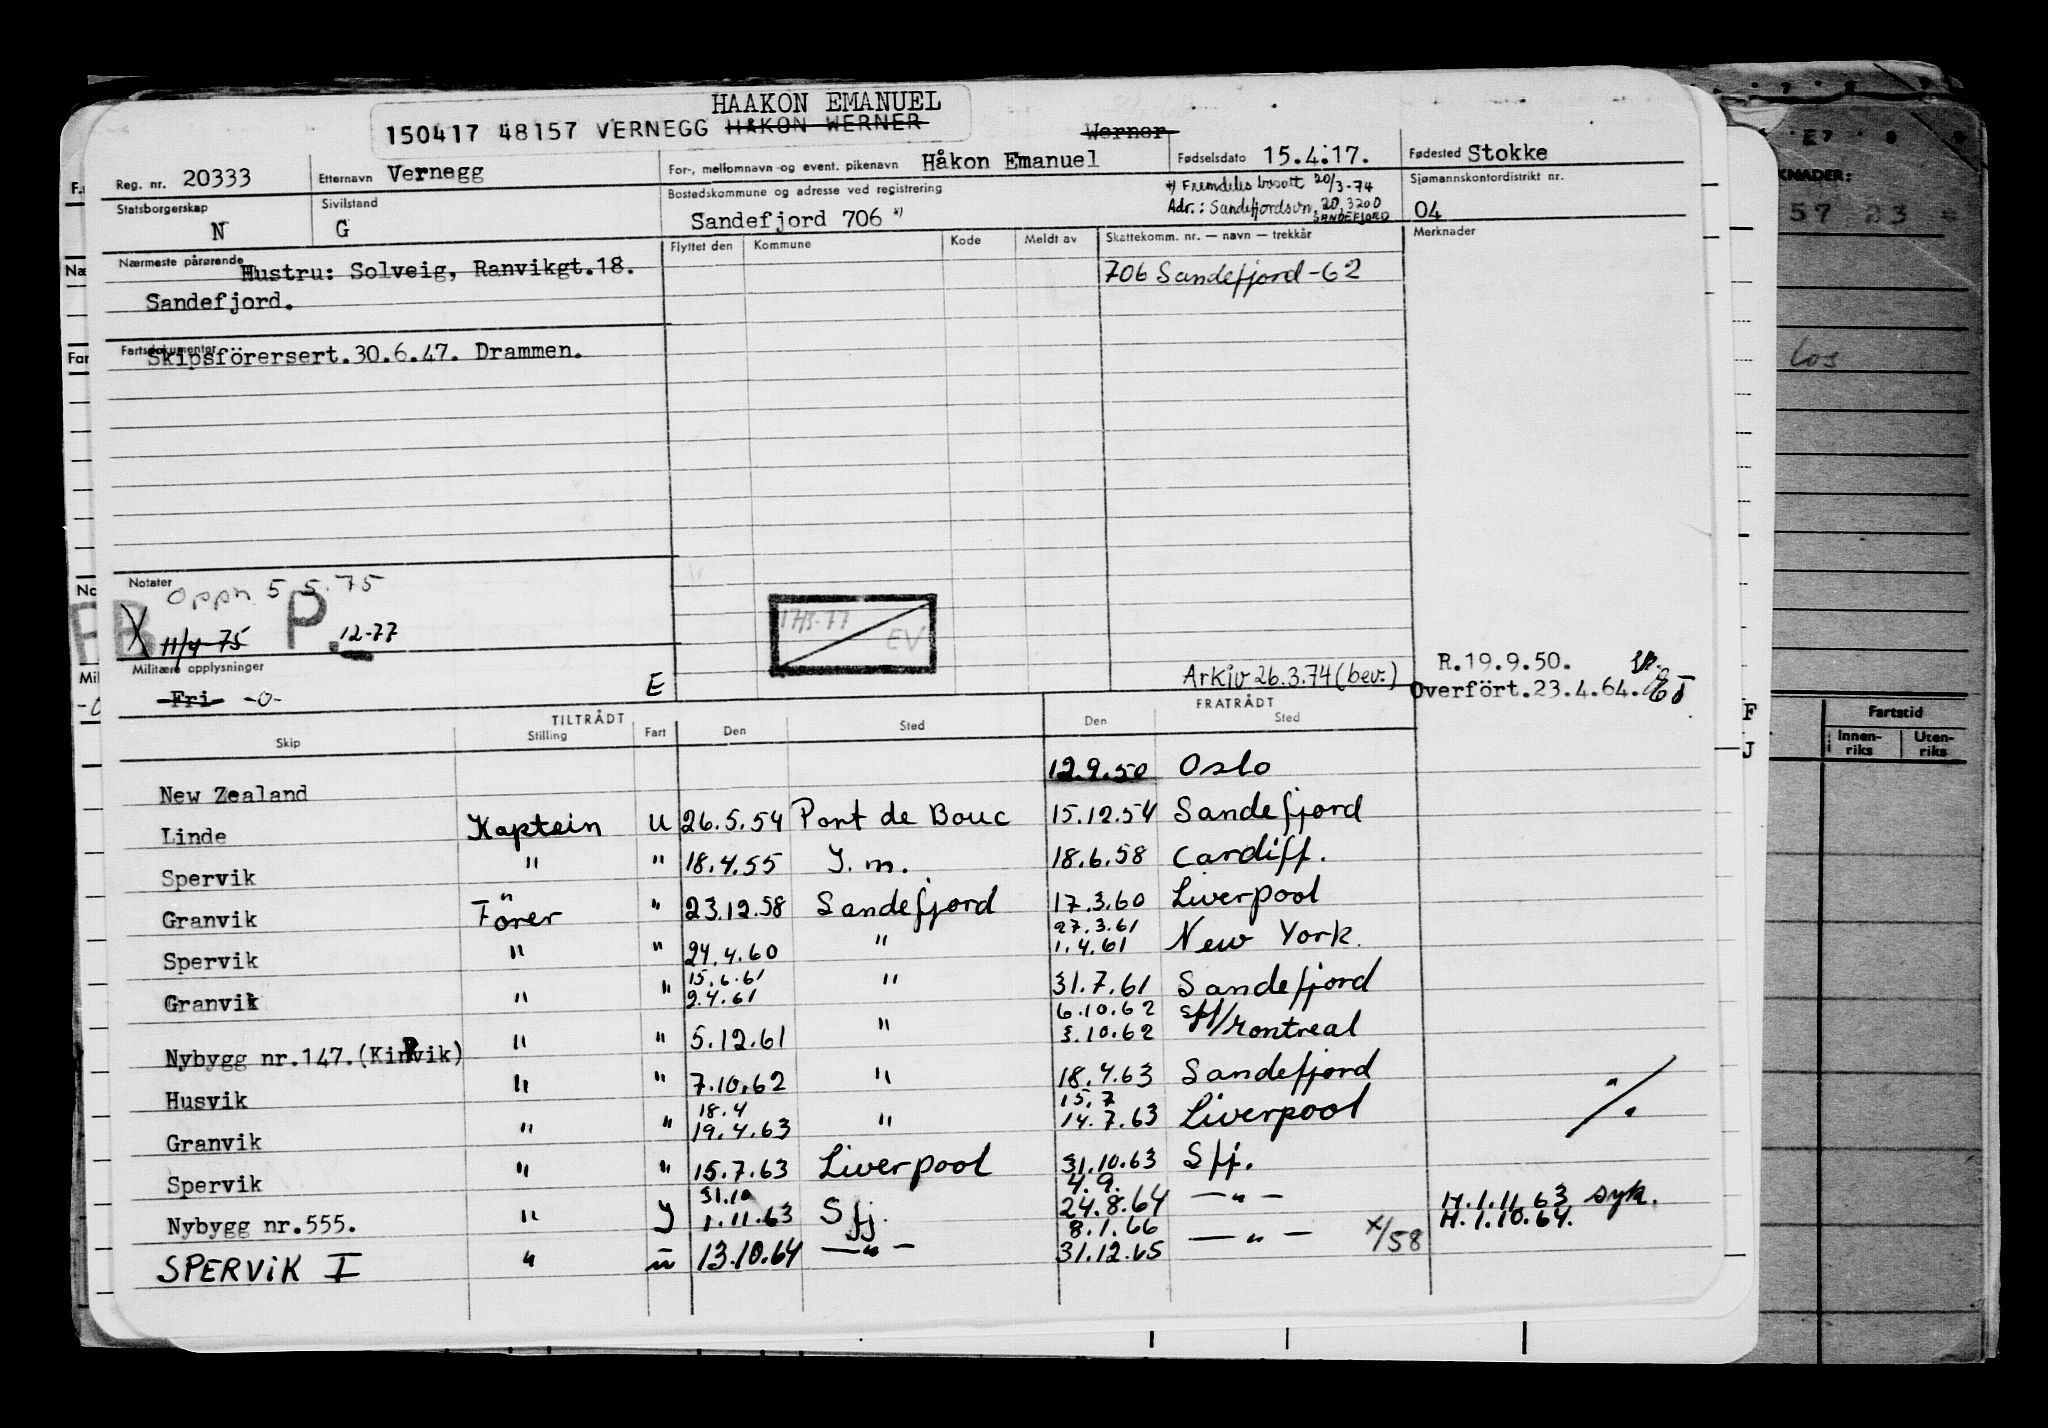 HAAKON EMANUEL
150417 48157 VERNEGG HAKON WERNER
Werner
Reg. nr. 20333 Etternavn Vernegg For-, mellomnavn og event. pikenavn Håkon Emanuel Fødselsdato 15.4.17. Fødested Stokke
Statsborgerskap N Sivilstand G Bostedskommune og adresse ved registrering Sandefjord 706 *) Sjømannskontordistrikt nr. 04
*) Fremdeles bosatt 20/3-74
Adr.: Sandefjordsvn. 20, 3200
SANDEFJORD
Nærmeste pårørende Flyttet den Kommune Kode Meldt av Skattekomm. nr. — navn — trekkår Merknader
Hustru: Solveig, Ranvikgt.18. 706 Sandefjord-62
Sandefjord.
Fartsdokumenter
Skipsförersert.30.6.47. Drammen.
Notater
Oppn 5.5.75
FB X 11/4-75 P. 12-77
EV
Militære opplysninger
Fri -0- E
Arkiv 26.3.74 (bev.)
R.19.9.50.
Overfört.23.4.64.
TILTRÅDT FRATRÅDT
Skip Stilling Fart Den Sted Den Sted
New Zealand 12.9.50 Oslo
Linde Kaptein U 26.5.54 Port de Bouc 15.12.54 Sandefjord
Spervik " " 18.4.55 J.m. 18.6.58 Cardiff.
Granvik " Förer " 23.12.58 Sandefjord 17.3.60 Liverpool
27.3.61
Spervik " " 24.4.60 " 1.4.61 New York.
15.6.61
Granvik " " 2.4.61 " 31.7.61 Sandefjord
6.10.62
Nybygg nr.147.(Kinvik) " " 5.12.61 " 3.10.62 Sfj/Montreal
Husvik " " 7.10.62 " 18.4.63 Sandefjord
18.4 15.7
Granvik " " 19.4.63 " 14.7.63 Liverpool
Spervik " " 15.7.63 Liverpool 31.10.63 Sfj.
31.10 4.9.
Nybygg nr.555. " J 1.11.63 Sfj. 24.8.64 — " — M.1.11.63 syk.
M.1.10.64.
8.1.66
SPERVIK I " U 13.10.64 — " — 31.12.65 — " — x/58
KNADER:
57 23
Los
Fartstid
Innen-
riks
Uten-
riks
F
J